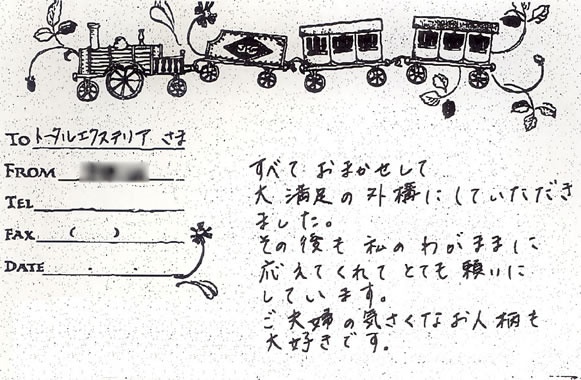 To トータルエクステリア さま
FROM
TEL
FAX ( )
DATE . .
すべて おまかせして
大満足の外構にしていただき
ました。
その後も 私の わがままに
応えてくれて とても 頼りに
しています。
ご夫婦の気さくなお人柄も
大好きです。